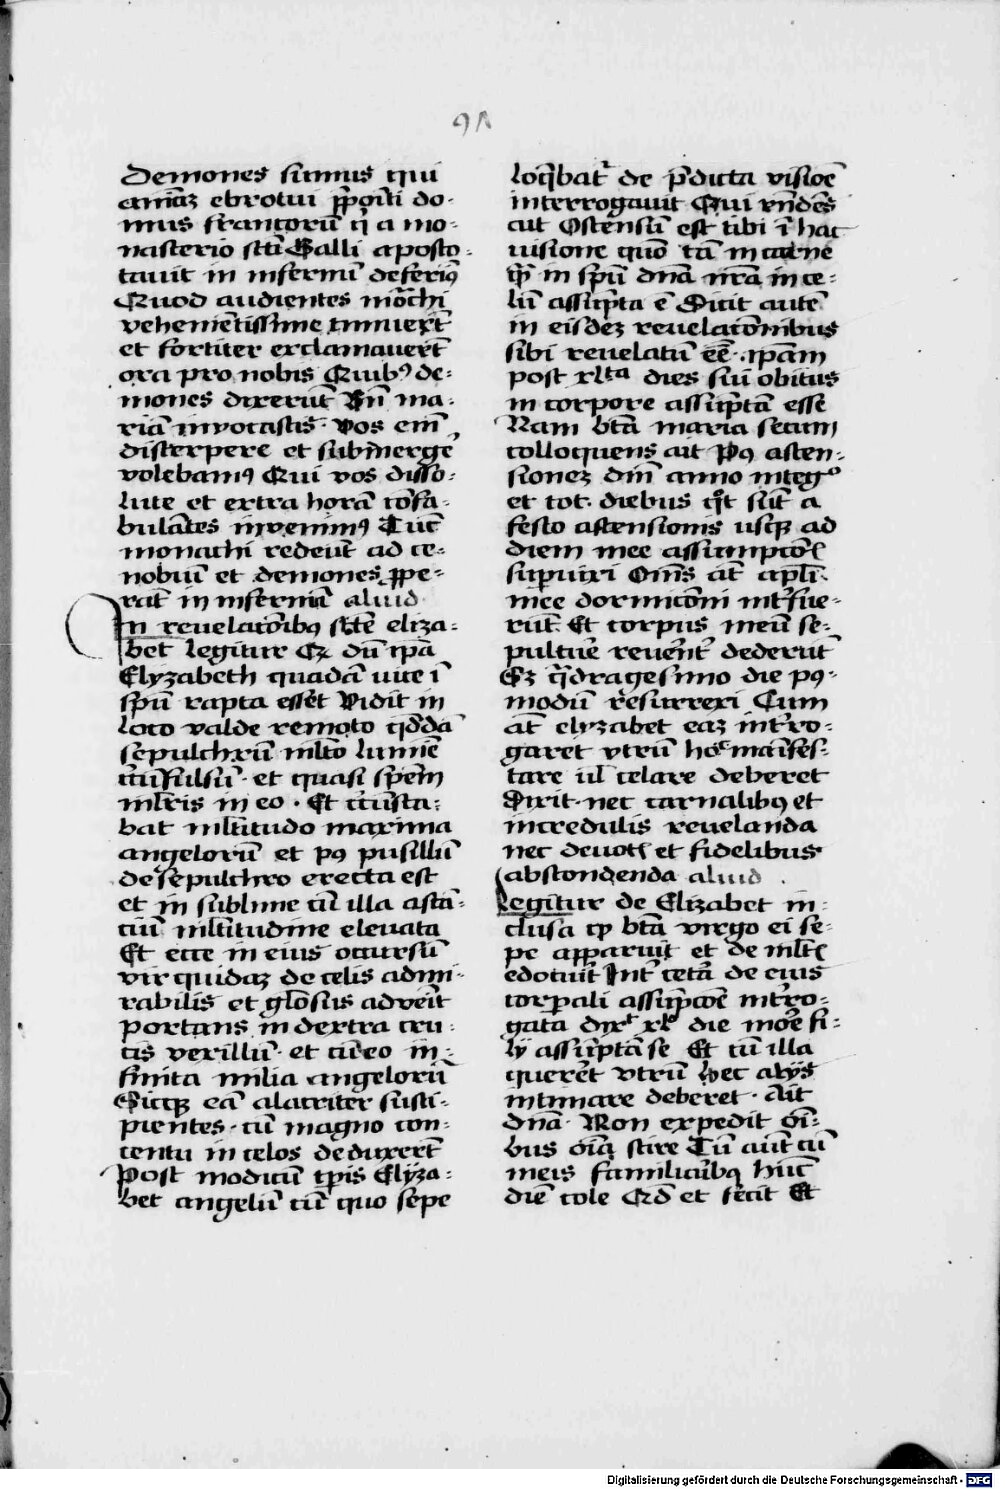 91
Demones sumus qui
aīaz ebroini ꝓpoīti do-
mus francorū q̄ a mo-
nasterio sctī Galli aposto-
tauit in infernū deferimꝰ
Quod audientes mōchi
vehemētissime timuer̄t
et fortiter exclamauer̄t
ora pro nobis Quibꝰ de-
mones dixerūt Bn̄ ma-
riā inuocastis. Vos em̄
discerpere et submerge͛
volebamꝰ Qui vos disso-
lute et extra horā cōfa-
bulātes inuenimꝰ Tūc
monachi redeūt ad ce-
nobiū et demones ꝓpe-
rāt in infernū aliud
In reuelatōibꝰ scte eliza-
bet legitur Qz dū ip̄a
Elyzabeth quadā uice ī
spū rapta esset Vidit in
loco valde remoto qddā
sepulchrū mlto lumīe
circūfulsū. et quasi spēm
mlieris in eo. Et circūsta-
bat mltitudo maxima
angelorū et pꝰ pusillū
de sepulchro erecta est
et in sublime cū illa astā-
ciū mltitudine eleuata
Et ecce in eius occursū
vir quidaz de celis admi-
rabilis et glosus aduēit
portans in dextra cru-
cis vexillū. et cū eo in-
finita milia angelorū
Sicqꝫ eā alacriter susci-
pientes. cū magno con-
centu in celos deduxer̄t
Post modicū tp̄is Elyza-
bet angelū cū quo sepe
loq̄bat͛ de p̄dicta visiōe
interrogauit Qui rn̄dēs
ait Ostensū est tibi ī hac
visione quō tā in carne
q̄ in spū dn̄a nr̄a in ce-
lū assūpta ē Dicit autē
in eisdez reuelatōnibus
sibi reuelatū eē. ip̄am
post xlta dies sui obitus
in corpore assūptā esse
Nam btā maria secum
colloquens ait Pꝰ ascen-
sionez dn̄i anno integº
et tot. diebus qͦt sūt a
festo ascensionis usqꝫ ad
diem mee assumptōis
supuixi Oms āt aplī.
mee dormicōni int͛fue-
rūt. Et corpus meū se-
pulture reuer̄nt͛ dederūt
Sz q̄dragesimo die pꝰ-
modū resurrexi Cum
āt elyzabet eaz int͛ro-
garet vtrū hoc manifes-
tare ul̄ celare deberet
Dixit. nec carnalibꝰ et
incredulis reuelanda
nec deuotis et fidelibus
abscondenda aliud
Legitur de Elizabet in-
clusa qꝫ btā virgo ei se-
pe apparuit et de mltis
edocuit Int͛ cetā de eius
corpali assūpcōe int͛ro-
gata dixt xlº die mōe fi-
lij assūptā se Et cū illa
querēt vtrū hec alijs
intimare deberet. Ait
dn̄a. Non expedit oī-
bus oīa scire Tū aūt cū
meis familiaribꝰ hūc
diē cole Qd̄ et fecit Et
Digitalisierung gefördert durch die Deutsche Forschungsgemeinschaft - DFG